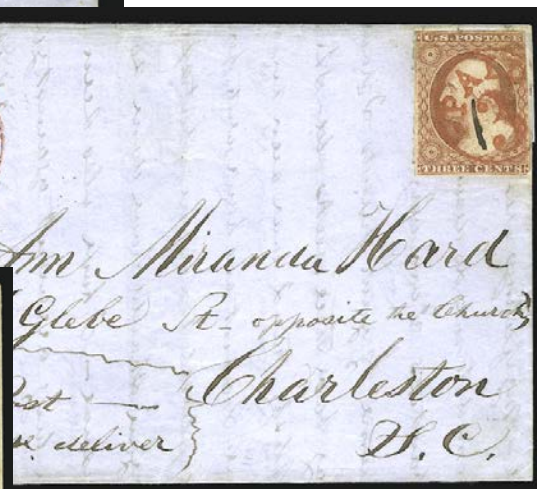 U.S. POSTAGE
PAID
3
THREE CENTS
Ann Miranda Hard
Glebe St - opposite the Church
Charleston
S. C.
deliver